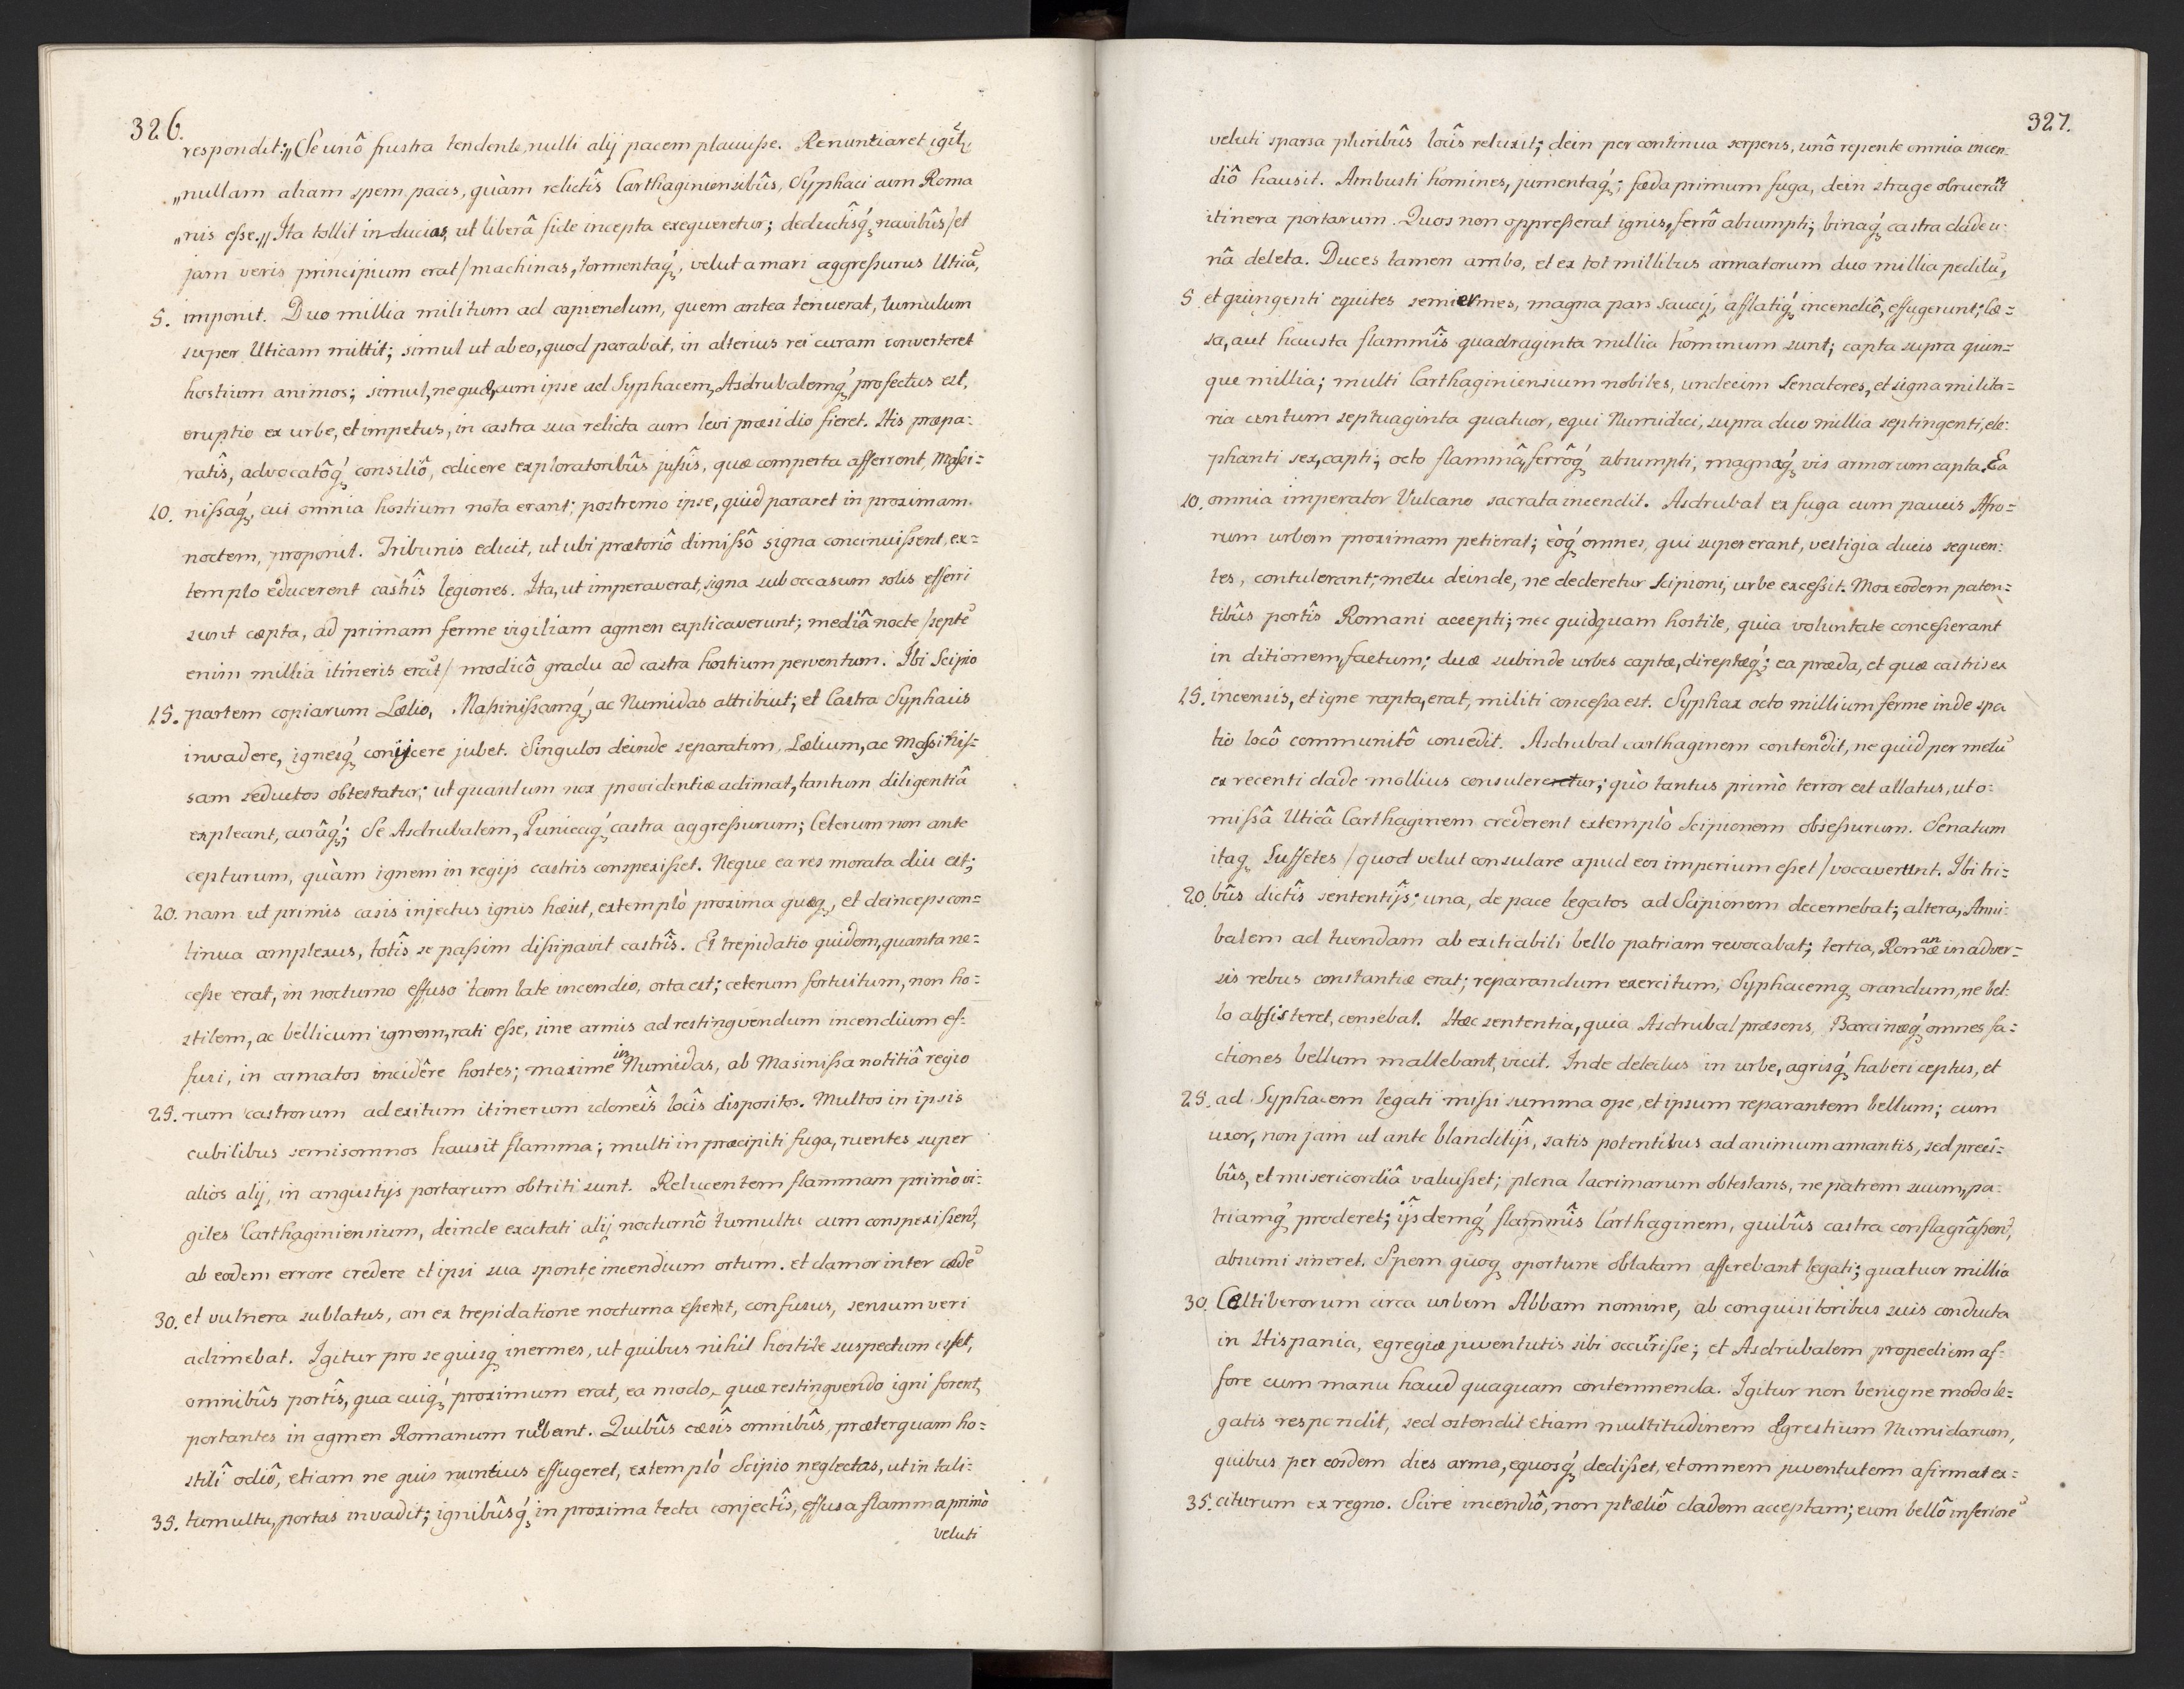 326.
respondit: „Se unô frustra tendente, nulli alij pacem placuisse. Renuntiaret igit̃,
„nullam aliam spem pacis, quàm relictîs Carthaginiensibûs, Syphaci cum Roma
„nis esse.„ Ita tollit inducias, ut liberâ fide incepta exequeretur; deductîsq́, navibûs /et
jam veris principium erat/ machinas, tormentaq́, velut a mari aggressurus Uticã,
5. imponit. Duo millia militum ad capiendum, quem antea tenuerat, tumulum
super Uticam mittit; simul ut ab eo, quod parabat, in alterius rei curam converteret
hostium animos; simul, ne qua, cum ipse ad Syphacem, Asdrubalemq́ profectus est,
eruptio ex urbe, et impetus, in castra sua relicta cum levi præsidio fieret. His præpa=
ratîs, advocatôq́ consiliô, edicere exploratoribûs jussîs, quæ comperta afferrent, Masi=
10. nissaq́, cui omnia hostium nota erant; postremo ipse, quid pararet in proximam
noctem, proponit. Tribunis edicit, ut ubi prætoriô dimissô signa concinuissent, ex=
templo educerent castrîs legiones. Ita, ut imperaverat, signa sub occasum solis efferri
sunt cæpta, ad primam ferme vigiliam agmen explicaverunt; mediâ nocte /septẽ
enim millia itineris erãt/ modicô gradu ad castra hostium perventum. Ibi Scipio
15. partem copiarum Lælio, Masinissamq́, ac Numidas attribuit; et Castra Syphacis
invadere, ignesq́ conijcere jubet. Singulos deinde separatim, Lælium, ac Massinis=
sam seductos obtestatur; ut quantum nox providentiæ adimat, tantum diligentiâ
expleant, curâq́; Se Asdrubalem, Punicaq́ castra aggressurum; Ceterum non ante
cepturum, quàm ignem in regijs castris conspexisset. Neque ea res morata diu est;
20. nam ut primis casis injectus ignis hæsit, extemplò proxima quæq, et deinceps con=
tinua amplexus, totîs se passim dissipavit castrîs. Et trepidatio quidem, quanta ne=
cesse erat, in nocturno effuso tam late incendio, orta est; ceterum fortuitum, non ho=
stilem, ac bellicum ignem, rati esse, sine armis ad restingvendum incendium ef=
fusi, in armatos incidêre hostes; maxime in Numidas, ab Masinissa notitiâ regio
25. rum castrorum ad exitum itinerum idoneîs locîs dispositos. Multos in ipsis
cubilibus semisomnos hausit flamma; multi in præcipiti fuga, ruentes super
alios alij, in angustijs portarum obtriti sunt. Relucentem flammam primò vi=
giles Carthaginiensium, deinde excitati alij nocturnô tumultu cum conspexissent,
ab eodem errore credere et ipsi sua sponte incendium ortum. et clamor inter cædẽ
30. et vulnera sublatus, an ex trepidatione nocturna essent, confusus, sensum veri
adimebat. Igitur pro se quisq inermes, ut quibus nihil hostile suspectum esset,
omnibûs portîs, qua cuiq́ proximum erat, ea modo, quæ restingvendo igni forent,
portantes in agmen Romanum ruebant. Quibûs cæsîs omnibûs, præterquam ho=
stilî odiô, etiam ne quis nuntius effugeret, extemplò Scipio neglectas, ut in tali=
35. tumultu, portas invadit; ignibûsq́ in proxima tecta conjectîs, effusa flamma primò
veluti
327.
veluti sparsa pluribûs locîs reluxit; dein per continua serpens, unô repente omnia incen=
diô hausit. Ambusti homines, jumentaq́; fæda primum fuga, dein strage obruerãt
itinera portarum. Quos non oppresserat ignis, ferrô absumpti; binaq́ castra clade u=
nâ deleta. Duces tamen ambo, et ex tot millibus armatorum duo millia peditũ,
5. et quingenti equites semiermes, magna pars saucij, afflatiq́ incendiô, effugerunt; cæ=
sa, aut hausta flammîs quadraginta millia hominum sunt; capta supra quin=
que millia; multi Carthaginiensium nobiles, undecim Senatores, et signa milita=
ria centum septuaginta quatuor, equi Numidici, supra duo millia septingenti, ele=
phanti sex, capti; octo flammâ, ferrôq́ absumpti, magnaq́ vis armorum capta. Ea
10. omnia imperator Vulcano sacrata incendit. Asdrubal ex fuga cum paucis Afro=
rum urbem proximam petierat; eòq́ omnes, qui supererant, vestigia ducis sequen=
tes, contulerant; metu deinde, ne dederetur Scipioni, urbe excessit. Mox eodem paten=
tibûs portîs Romani accepti; nec quidquam hostile, quia voluntate concesserant
in ditionem, factum; duæ subinde urbes captæ, direptæq́; ea præda, et quæ castris ex
15. incensis, et igne rapta, erat, militi concessa est. Syphax octo millium ferme inde spa
tio locô communitô consedit. Asdrubal carthaginem contendit, ne quid per metũ
ex recenti clade mollius consuleretur; quò tantus primò terror est allatus, ut o=
missâ Uticâ Carthaginem crederent extemplò Scipionem obsessurum. Senatum
itaq Suffetes /quod velut consulare apud eos imperium esset/ vocaverunt. Ibi tri=
20. bûs dictîs sententijs; una, de pace legatos ad Scipionem decernebat; altera, Anni=
balem ad tuendam ab exitiabili bello patriam revocabat; tertia, Romanæ in adver=
sis rebus constantiæ erat; reparandum exercitum, Syphacemq orandum, ne bel=
lo absisteret, censebat. Hæc sententia, quia Asdrubal præsens, Barcinæq́ omnes fa=
ctiones bellum mallebant, vicit. Inde delectus in urbe, agrisq́ haberi ceptus, et
25. ad Syphacem legati missi summa ope, et ipsum reparantem bellum; cum
uxor, non jam ut ante blanditijs, satis potentibus ad animum amantis, sed preci=
bûs, et misericordiâ valuisset; plena lacrimarum obtestans, ne patrem suum, pa=
triamq́ proderet; ijsdemq́ flammîs Carthaginem, quibûs castra conflagrâssent,
absumi sineret. Spem quoq oportune oblatam afferebant legati; quatuor millia
30. Celtiberorum circa urbem Abbam nomine, ab conquisitoribus suis conducta
in Hispania, egregiæ juventutis sibi occurisse; et Asdrubalem propediem af=
fore cum manu haud quaquam contemnenda. Igitur non benigne modo le=
gatis respondit, sed ostendit etiam multitudinem agrestium Numidarum,
quibus per eosdem dies arma, equosq́ dedisset, et omnem juventutem afirmat ex=
35. citurum ex regno. Scire incendiô, non præliô cladem acceptam; eum bellô inferiorẽ